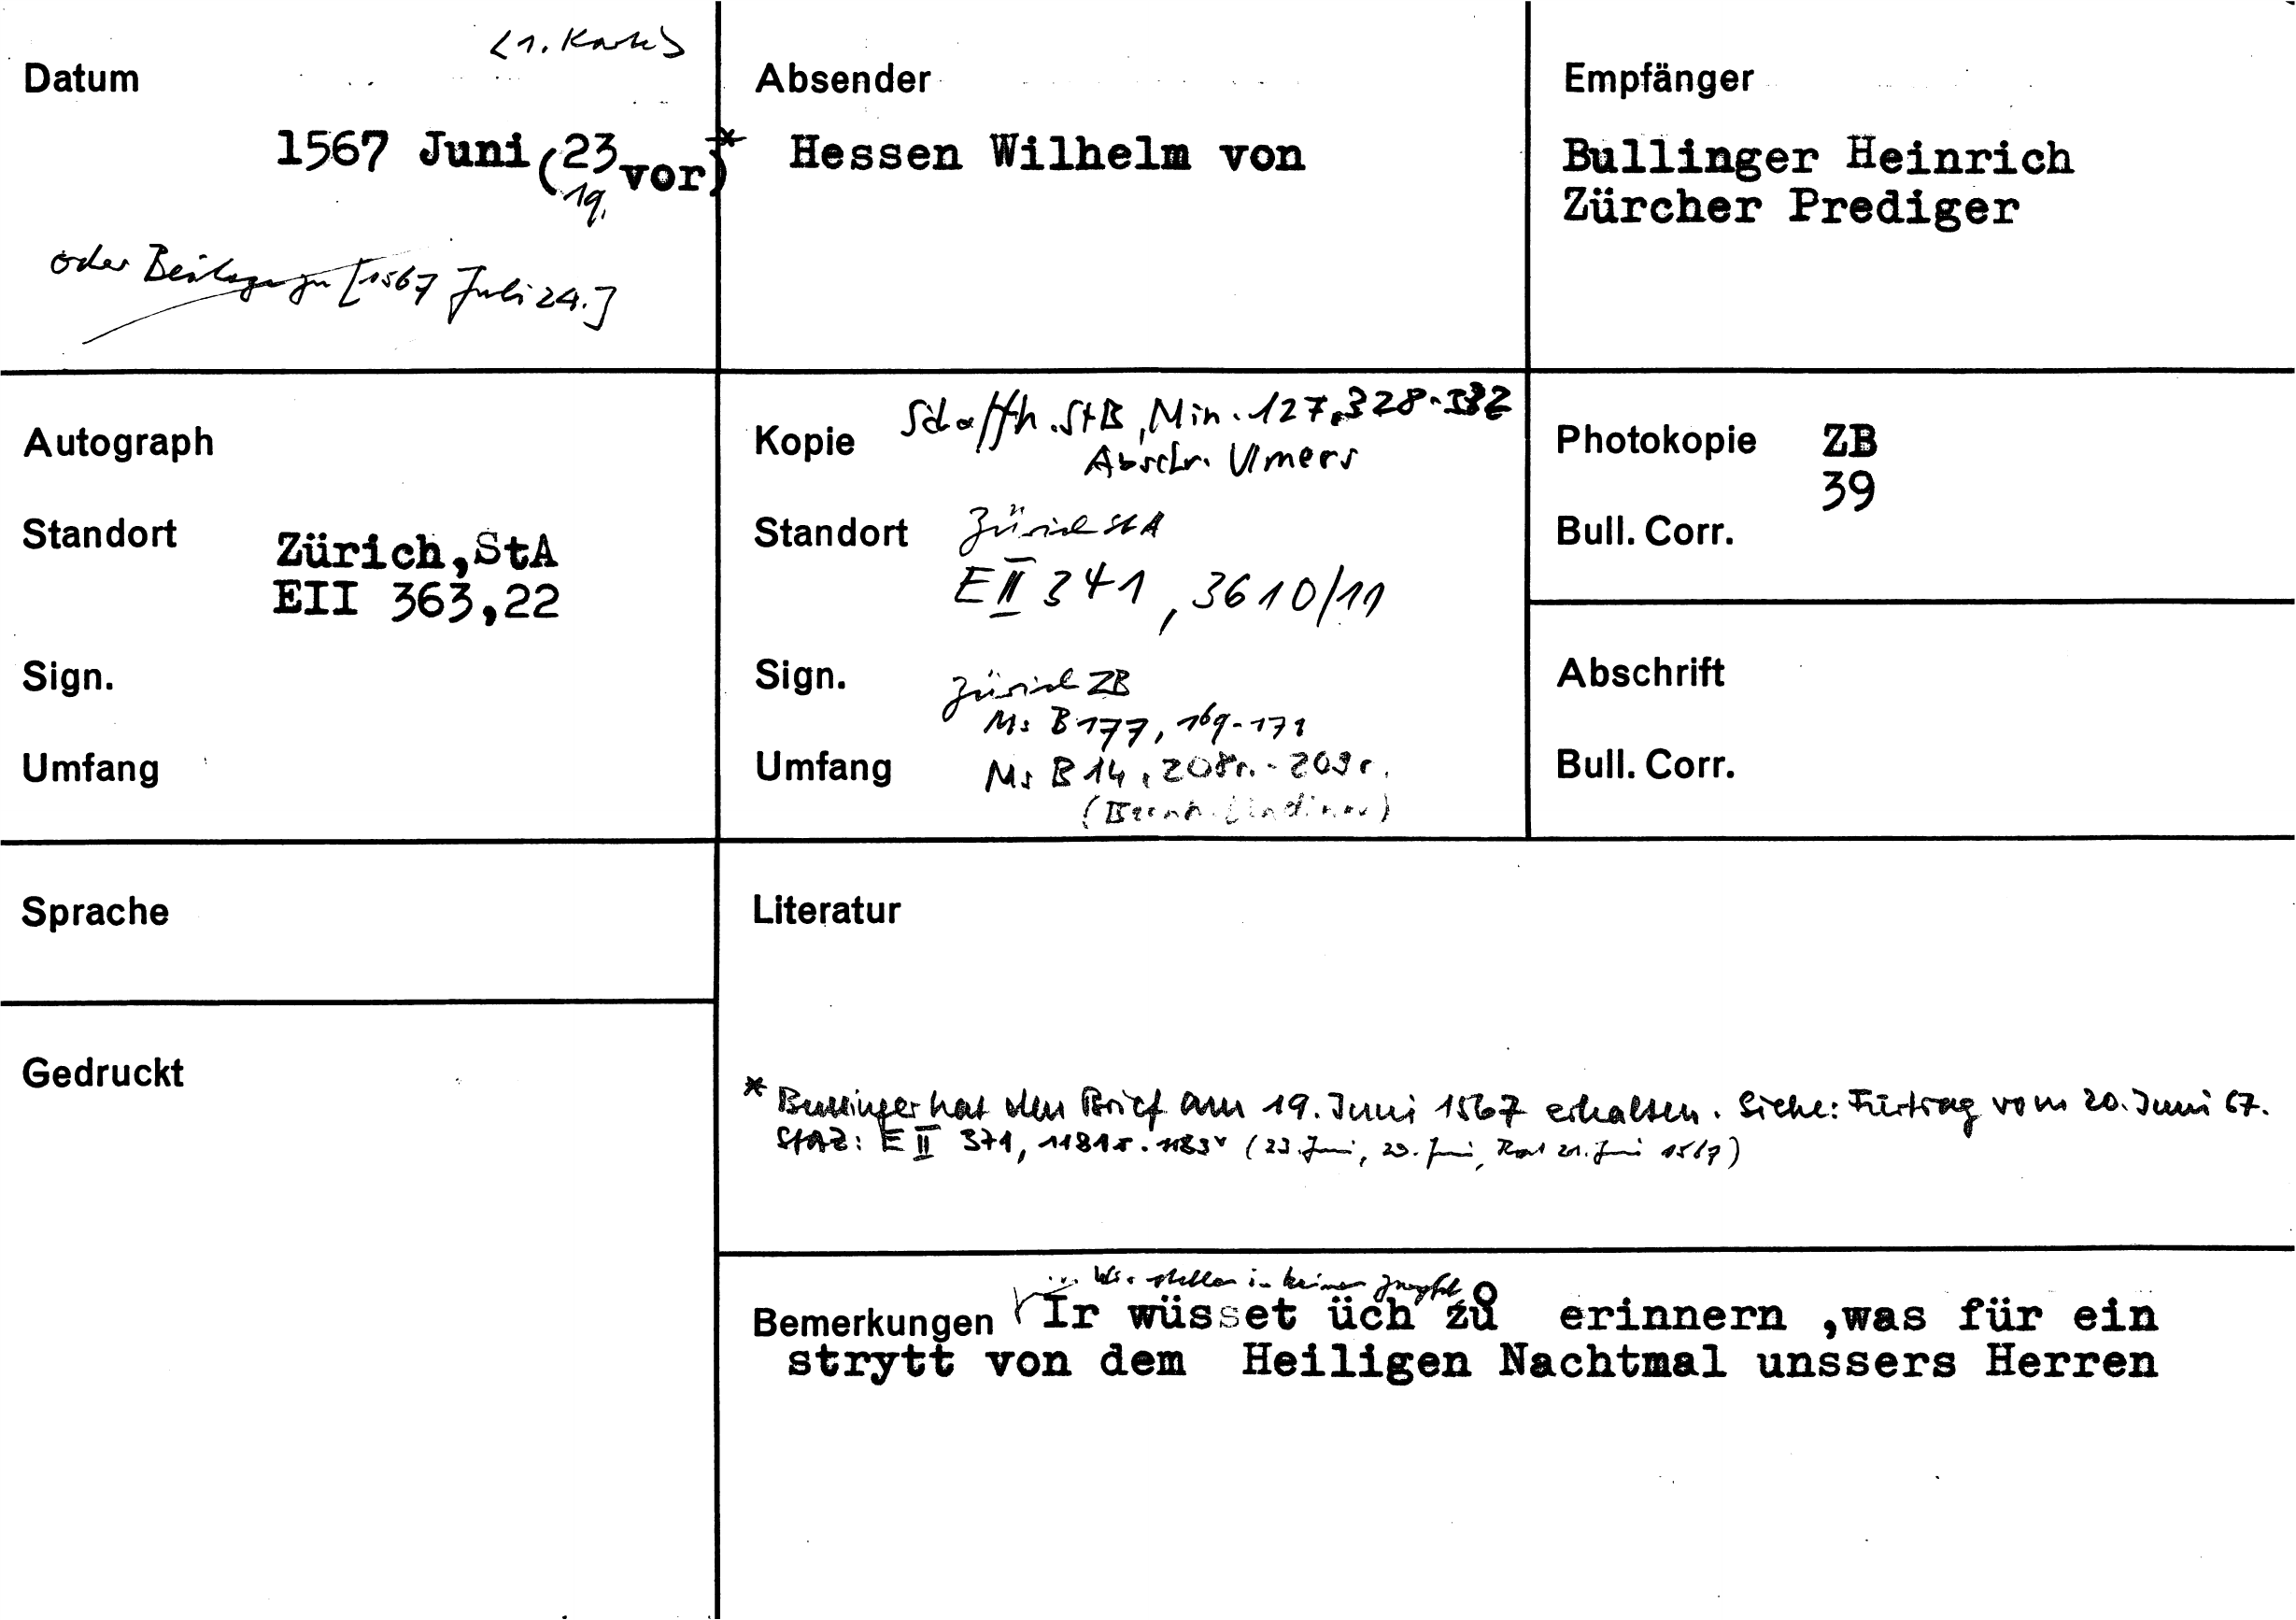 <1. Karte>
Datum
1567 Juni (23 vor)*
19.
oder Beilage zu [1567 Juli 24.]
Absender
Hessen Wilhelm von
Empfänger
Bullinger Heinrich
Zürcher Prediger
Autograph
Standort
Zürich,StA
EII 363,22
Sign.
Umfang
Kopie Schaffh. StB, Min. 127, 328-332
Abschr. Ulmers
Standort Zürich StA
E II 341, 3610/11
Sign. Zürich ZB
Ms B 177, 169-171
Umfang Ms B 14, 208r.-209r.
Photokopie ZB
39
Bull. Corr.
Abschrift
Bull. Corr.
Sprache
Literatur
* Bullinger hat den Brief am 19. Juni 1567 erhalten. Siehe: Fürtrag vom 20. Juni 67.
StAZ: E II 371, 1181r.-1183v (23. Juni, 20. Juni, Rat 21. Juni 1567)
Gedruckt
... Wir stellen in keinen
Bemerkungen Ir wüsset üch zů erinnern ,was für ein
strytt von dem Heiligen Nachtmal unssers Herren